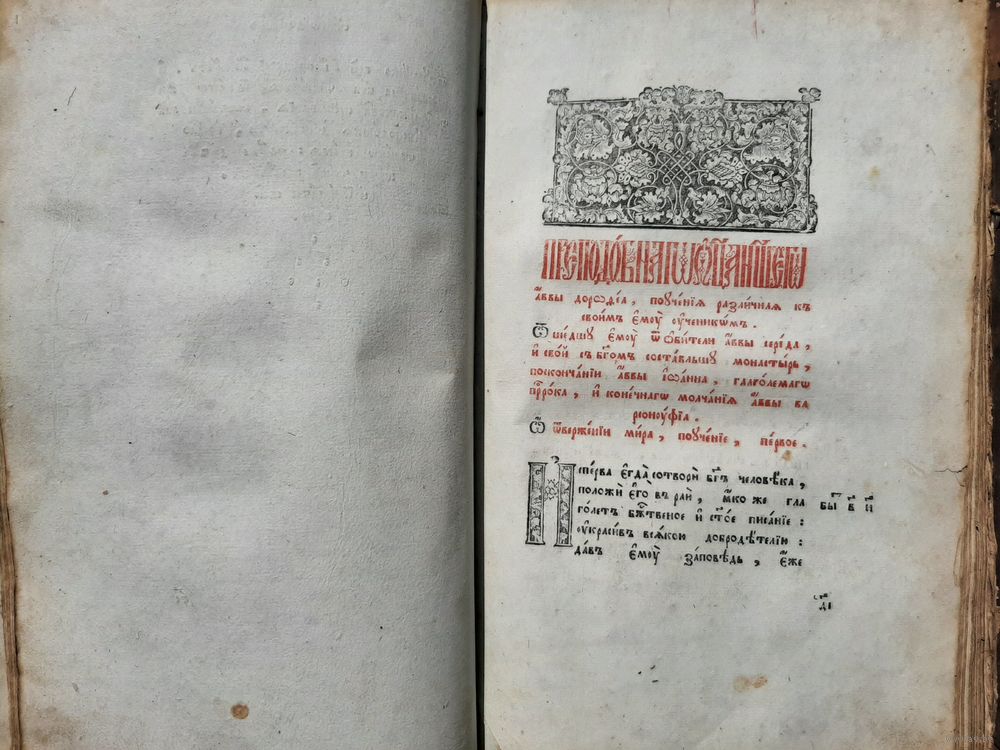 ПРЕПОДО́БНАГѠ ѾЦА̀ НА́ШЕГѠ
а҆́ввы дороѳе́а, поꙋче́нїѧ разли́чнаѧ къ
свои̑мъ є҆мꙋ̀ ᲂу҆чн҃икѡ́мъ.
Ѿше́дшꙋ є҆мꙋ̀ ѿ ѻ҆би́тели а҆́ввы сери́да,
и҆ сво́й съ бг҃омъ соста́вльшꙋ монасты́рь,
поскончанїи а҆́ввы і҆ѡа́нна, глаго́лемагѡ
прⷪ҇ро́ка, и҆ коне́чнагѡ молча́нїѧ а҆́ввы ва
рсоноу́фїа.
Ѽ ѿверже́нїи ми́ра, поꙋче́нїе, пе́рвое.
Спе́рва є҆гда̀ сотворѝ бг҃ъ человѣ́ка,
положѝ є҆го̀ въ раѝ, ꙗ҆́коже гла
го́летъ бж҃е́ственое и҆ ст҃о́е писа́нїе:
ᲂу҆краси́въ всѧ́кою добродѣ́телїю:
да́въ є҆мꙋ̀ за́повѣдь, є҆́же
бы в҃ и҃
д҃і